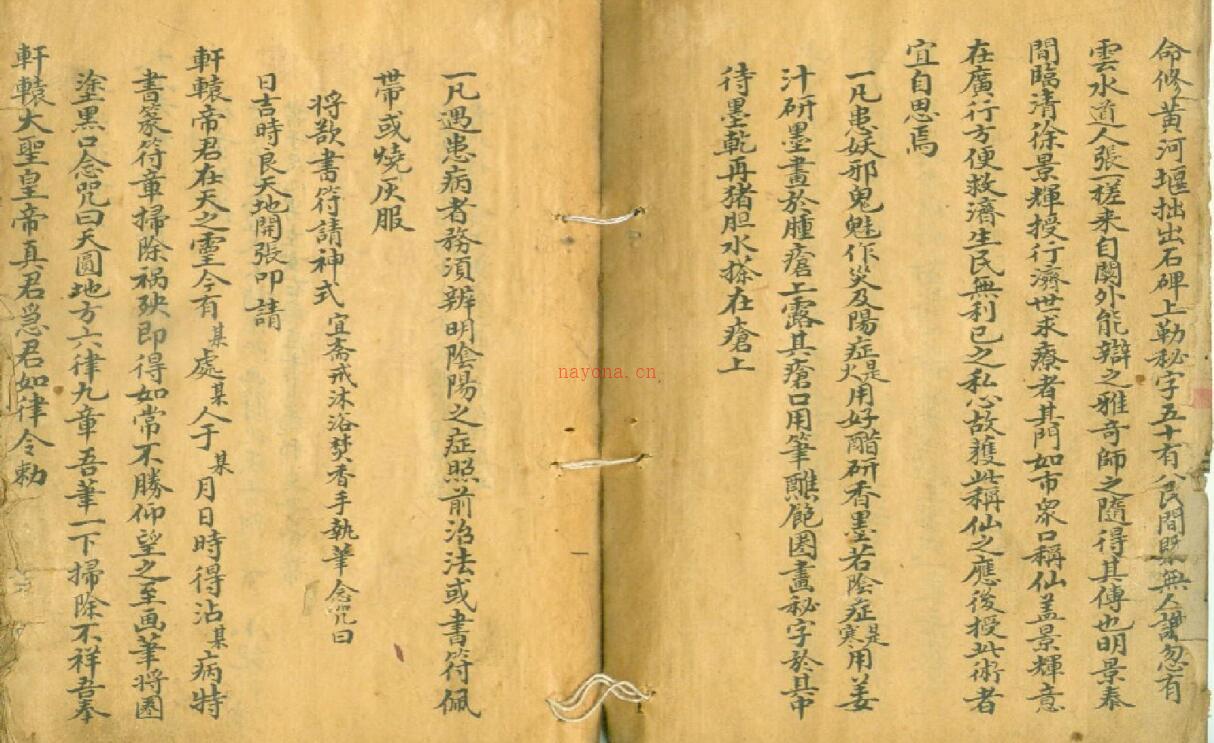 命修黃河堰拙出石碑上勒秘字五十有八民間既無人識忽有
雲水道人張一槎来自関外能辯之雅奇師之隨得其傳也明景泰
間臨清徐景輝授行濟世求療者其門如市衆口稱仙盖景輝意
在廣行方便救濟生民無利已之私心故獲此稱仙之應後授此術者
宜自思焉
一凡患妖邪鬼魅作災及陽症是火用好醋研香墨若陰症是寒用姜
汁研墨畫於腫瘡上露其瘡口用筆醮飽圏畫秘字於其中
待墨乾再猪胆水搽在瘡上
一凡遇患病者務須辨明陰陽之症照前治法或書符佩
帶或燒灰服
将欲書符請神式 宜齋戒沐浴焚香手執筆念咒曰
日吉時良天地開張叩請
軒轅帝君在天之靈今有某處某人于某月日時得沾某病特
書篆符章掃除禍殃即得如常不勝仰望之至画筆將圏
塗黑口念咒曰天圓地方六律九章吾筆一下掃除不祥吾奉
軒轅大聖皇帝真君急君如律令勅
nayona.cn